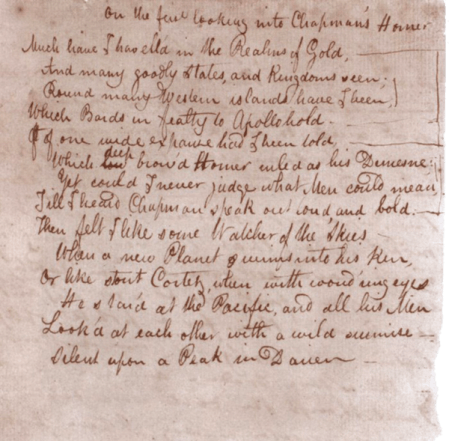 On the first looking into Chapman's Homer
Much have I travell'd in the Realms of Gold,
And many goodly States, and Kingdoms seen;
Round many Western islands have I been,
Which Bards in fealty to Apollo hold.
Of one wide expanse had I been told,
Which low deep brow'd Homer ruled as his Demesne:
Yet could I never judge what Men could mean
Till I heard Chapman speak out loud and bold.
Then felt I like some Watcher of the Skies
When a new Planet swims into his Ken,
Or like stout Cortez, when with wond'ring eyes
He star'd at the Pacific, and all his Men
Look'd at each other with a wild surmise—
Silent upon a Peak in Darien—